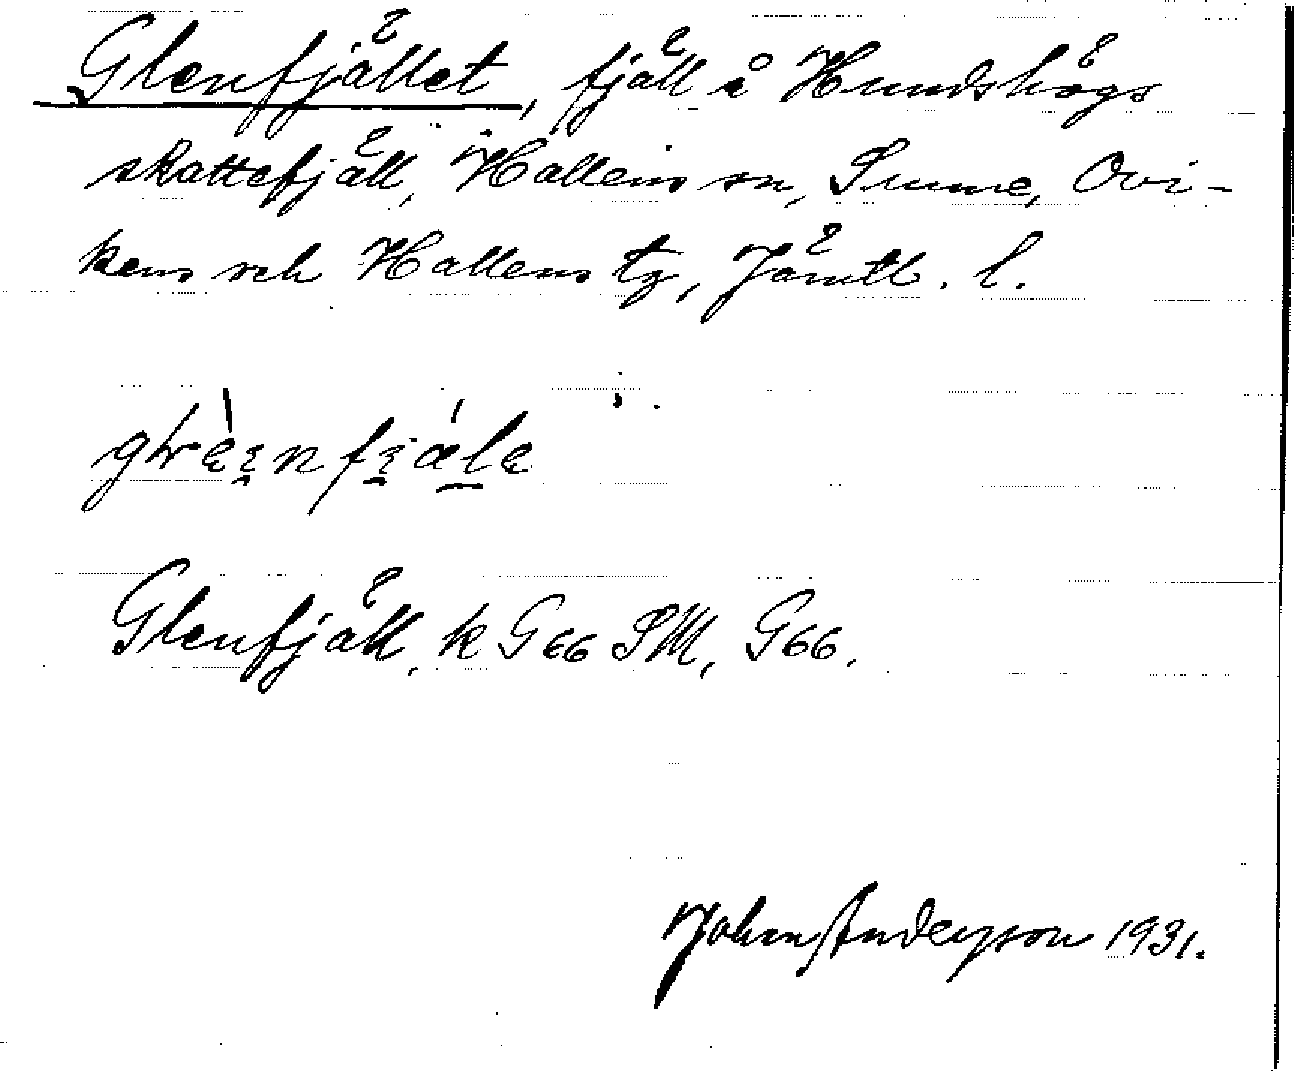 Glenfjället, fjäll å Hundshögs
skattefjäll, Hallens sn, Sunne, Ovi-
kens och Hallens tg, Jämtl. l.
Glenfjäll, k G66 SM, G66.
John Andersson 1931.